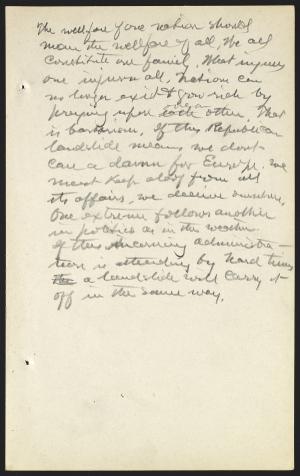 The wellfare of one nation should
mean the wellfare of all, We all
constitute one family. What injures
one injures all. Nation can
no longer exist & grow rich by
preying upon each other. That
is barbarism. If this Republican
landslide means we dont
care a damn for Europe. We
must keep aloof from all
its affairs, we deceive ourselves.
One extreme follows another
in politics as in the weather.
If this incoming administra-
tion is attended by hard times
the a landslide will carry it
off in the same way.